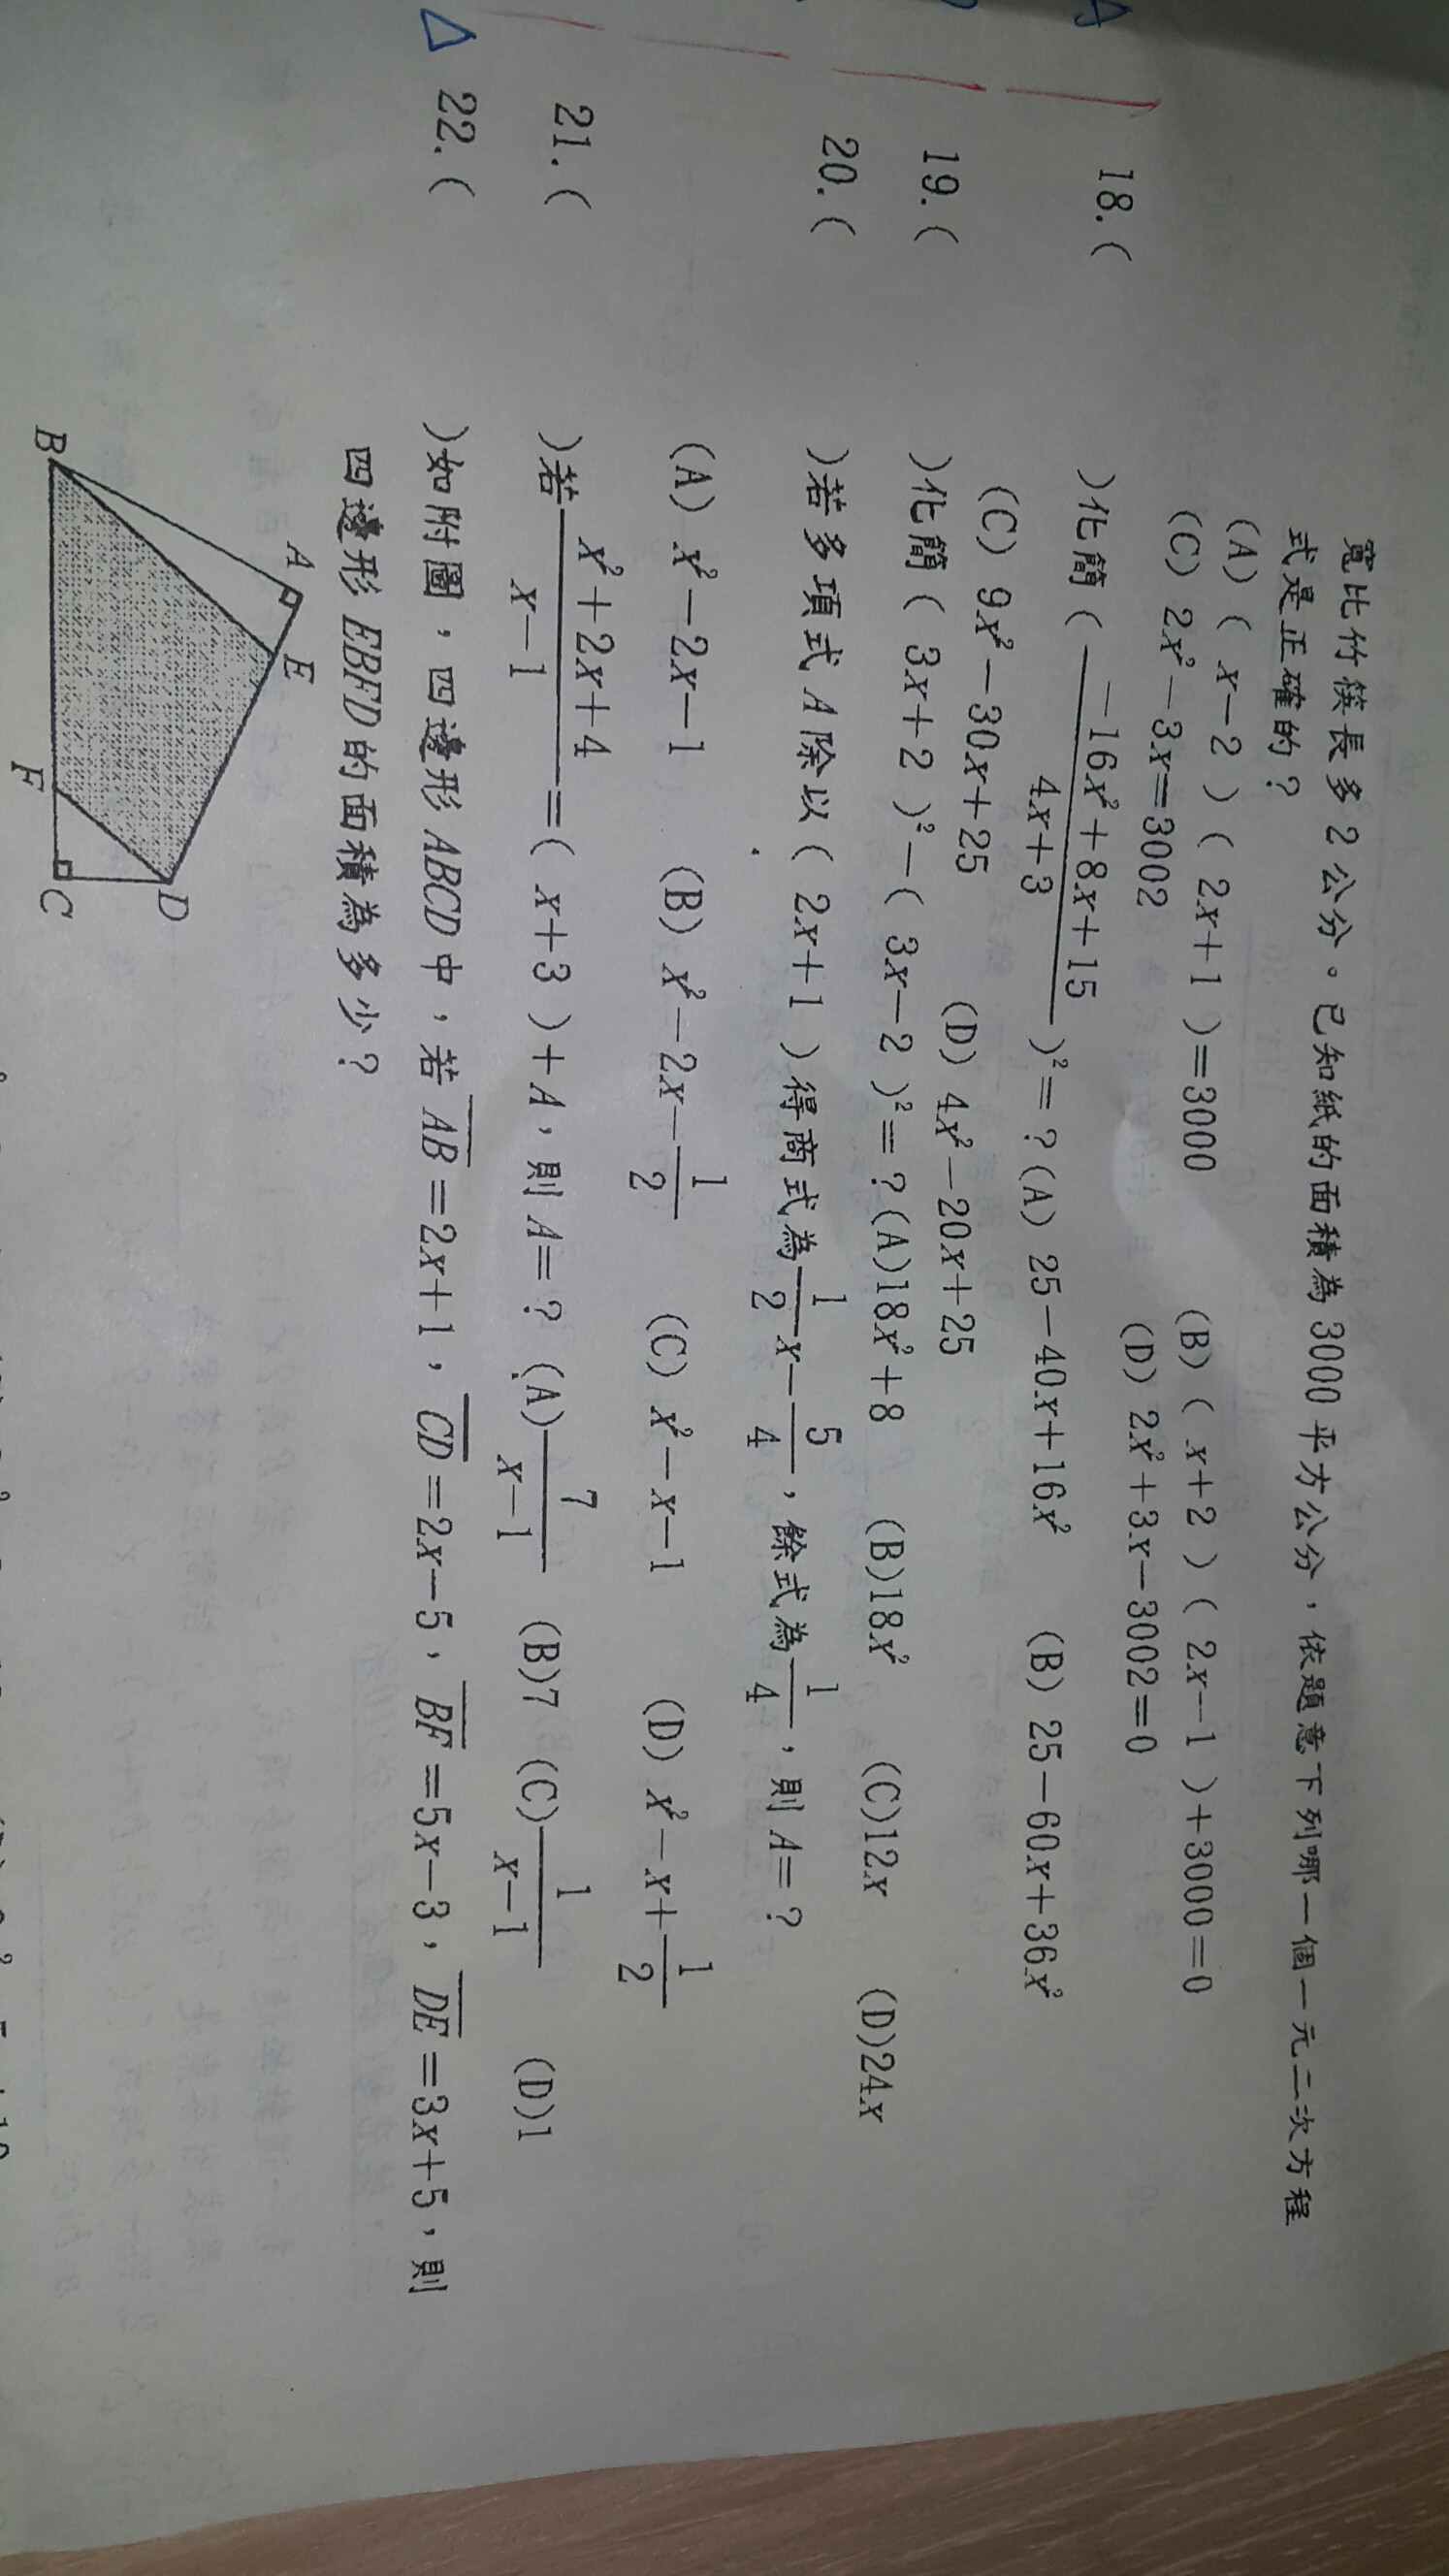 寬比竹筷長多2公分。已知紙的面積為3000平方公分，依題意下列哪一個一元二次方程
式是正確的？
(A)( x－2 )( 2x＋1 )＝3000 (B)( x＋2 )( 2x－1 )＋3000＝0
(C) 2x²－3x＝3002 (D) 2x²＋3x－3002＝0
18.( )化簡( (－16x²＋8x＋15)/(4x＋3) )²＝？(A) 25－40x＋16x² (B) 25－60x＋36x²
(C) 9x²－30x＋25 (D) 4x²－20x＋25
19.( )化簡( 3x＋2 )²－( 3x－2 )²＝？(A)18x²＋8 (B)18x² (C)12x (D)24x
20.( )若多項式A除以( 2x＋1 )得商式為1/2x－5/4，餘式為1/4，則A＝？
(A) x²－2x－1 (B) x²－2x－1/2 (C) x²－x－1 (D) x²－x＋1/2
21.( )若(x²＋2x＋4)/(x－1)＝( x＋3 )＋A，則A＝？(A)7/(x－1) (B)7 (C)1/(x－1) (D)1
△ 22.( )如附圖，四邊形ABCD中，若AB＝2x＋1，CD＝2x－5，BF＝5x－3，DE＝3x＋5，則
四邊形EBFD的面積為多少？
A
E
B
D
F
C